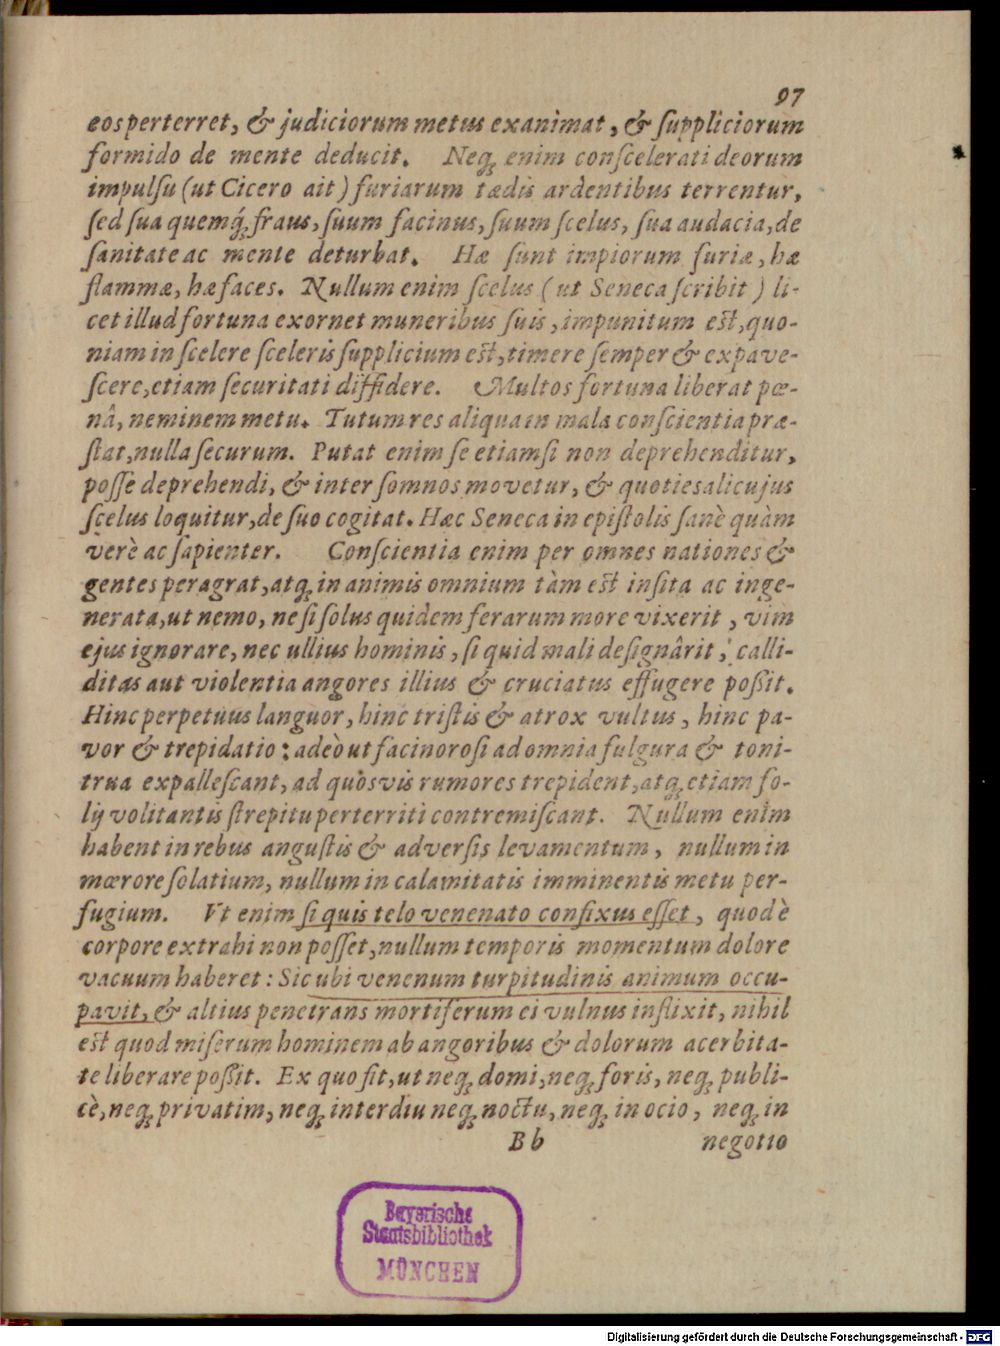 97
eos perterret, & judiciorum metus exanimat, & ſuppliciorum
formido de mente deducit. Neq; enim conſcelerati deorum
impulſu (ut Cicero ait) furiarum tædis ardentibus terrentur,
ſed ſua quemq́; fraus, ſuum facinus, ſuum ſcelus, ſua audacia, de
ſanitate ac mente deturbat. Hæ ſunt impiorum furiæ, hæ
flammæ, hæ faces. Nullum enim ſcelus (ut Seneca ſcribit) li-
cet illud fortuna exornet muneribus ſuis, impunitum eſt, quo-
niam in ſcelere ſceleris ſupplicium eſt, timere ſemper & expave-
ſcere, etiam ſecuritati diffidere. Multos fortuna liberat pœ-
nâ, neminem metu. Tutum res aliqua in mala conſcientia præ-
ſtat, nulla ſecurum. Putat enim ſe etiamſi non deprehenditur,
poſſe deprehendi, & inter ſomnos movetur, & quoties alicujus
ſcelus loquitur, de ſuo cogitat. Hæc Seneca in epiſtolis ſanè quàm
verè ac ſapienter. Conſcientia enim per omnes nationes &
gentes peragrat, atq; in animis omnium tàm eſt inſita ac inge-
nerata, ut nemo, ne ſi ſolus quidem ferarum more vixerit, vim
ejus ignorare, nec ullius hominis, ſi quid mali deſignârit, calli-
ditas aut violentia angores illius & cruciatus effugere poßit.
Hinc perpetuus languor, hinc triſtis & atrox vultus, hinc pa-
vor & trepidatio: adeò ut facinoroſi ad omnia fulgura & toni-
trua expalleſcant, ad quosvis rumores trepident, atq; etiam fo-
lij volitantis ſtrepitu perterriti contremiſcant. Nullum enim
habent in rebus anguſtis & adverſis levamentum, nullum in
mœrore ſolatium, nullum in calamitatis imminentis metu per-
fugium. Vt enim ſi quis telo venenato confixus eſſet, quod è
corpore extrahi non poſſet, nullum temporis momentum dolore
vacuum haberet: Sic ubi venenum turpitudinis animum occu-
pavit, & altius penetrans mortiferum ei vulnus inflixit, nihil
eſt quod miſerum hominem ab angoribus & dolorum acerbita-
te liberare poßit. Ex quo fit, ut neq; domi, neq; foris, neq; publi-
cè, neq; privatim, neq; interdiu neq; noctu, neq; in ocio, neq; in
B b negotio
Bayerische
Staatsbibliothek
MÜNCHEN
Digitalisierung gefördert durch die Deutsche Forschungsgemeinschaft - DFG